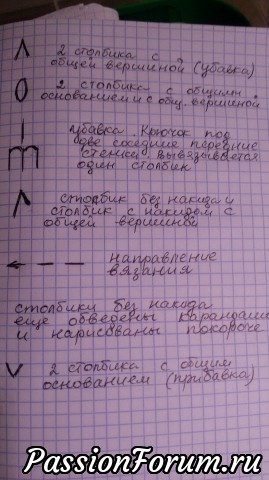 2 столбика с
общей вершиной (убавка)
2 столбика с общим
основанием и с общ. вершиной
убавка. Крючок под
две соседние передние
стенки. Вывязывается
один столбик
столбик без накида и
столбик с накидом с
общей вершиной
направление
вязания
столбики без накида
еще обведены карандашо
и нарисованы покороче
2 столбика с общим
основанием (прибавка)
PassionForum.ru